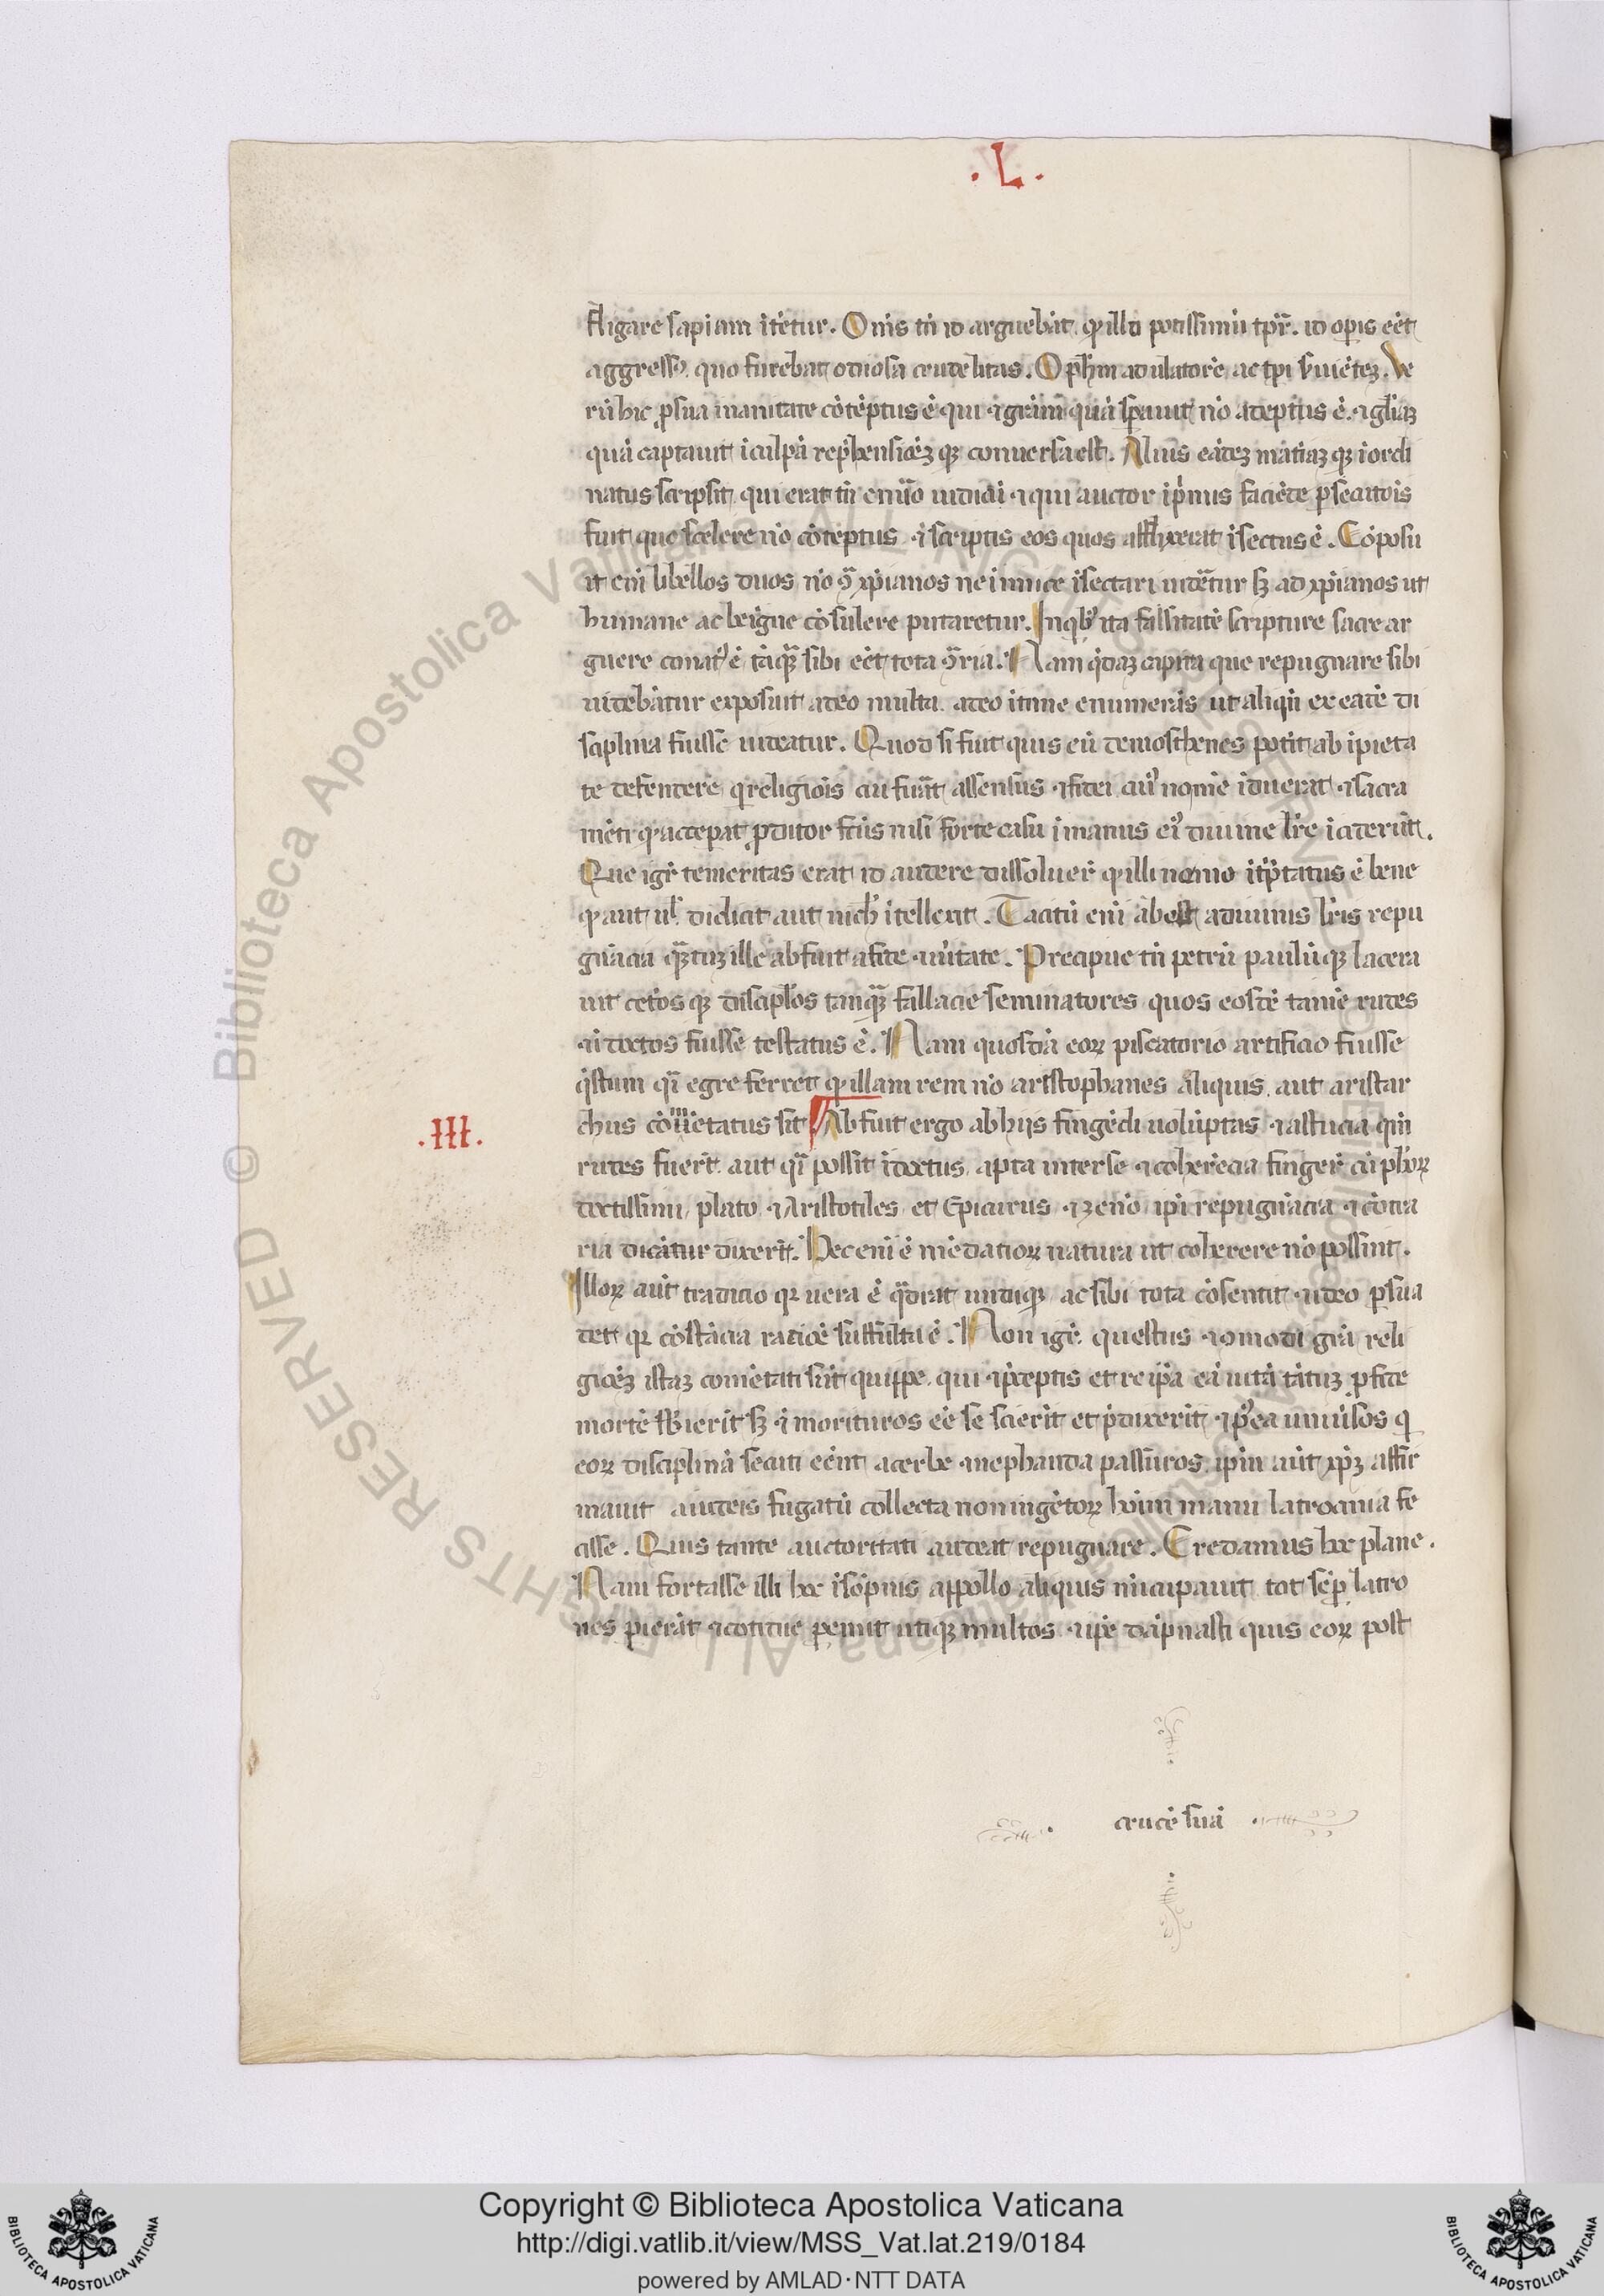 .L.
fligare sapiam itētur. Oms tn̄ id arguebāt qꝫ illo potissimū tpr̄. id opis eēt
aggressꝰ quo furebat odiosa crudelitas. O ph̄m adulatorē ac tpi s̄uiēteꝫ. Ve
rū hic ꝓ sua inanitate cōtēptus ē qui ⁊ grām quā spauit nō adeptus ē. ⁊ gl̄iaꝫ
quā captauit ī culpā reph̄ensiōeꝫ qꝫ conuersa est. Alius eādeꝫ mātiaꝫ qꝫ ī ordi
natus scripsit qui erat tū ē nūo iudicū ⁊ qui auctor īprimis faciēde ꝑsecutiōis
fuit quo scelere nō cōtēptus ⁊ scriptis eos quos afflixerat īsectus ē. Cōposu
it eni libellos duos nō ꝯ̄ xp̄ianos ne inimice īsectari uidētur sꝫ ad xp̄ianos ut
humane ac beigne cōsulere putaretur. In qbꝰ ita falsitatē scripture sacre ar
guere conatꝰ ē tāqꝫ sibi eēt tota ꝯ̄ria. Nam qdaꝫ capita que repugnare sibi
uidebātur exposuit adeo multa. adeo itime enumerās ut aliqn̄ ex eadē di
sciplina fuisse uideatur. Quod si fuit quis eū demosthenes potit ab īpieta
te defendere q religiōis cui fuāt assensus ⁊ fidei cuiꝰ nomē īduerat ⁊ sacra
mēti qꝫ acceperat ꝓditor fc̄us nisi forte casu ī manus eiꝰ diuine lr̄e īciderūt.
Que igr̄ temeritas erat id audere dissoluer̄ qꝫ illi nemo īt̄p̄tatus ē bene
qꝫ aut ul̄ didicit aut nich̄ ītellexit. Tactū eni abest a diuinis lr̄is repu
gnācia qꝫtuꝫ ille abfuit a fide ⁊ ūitate. Precipue tn̄ petrū paulūqꝫ lacera
uit cet̄os qꝫ discipl̄os tamqꝫ fallacie seminatores quos eosdē tamē rudes
⁊ īdoctos fuisse testatus ē. Nam quosdā eoꝝ piscatorio artificio fuisse
q̄stum q̄i egre ferret qꝫ illam rem nō aristophanes aliquis aut aristar
.III.
chus cōm̄etatus sit. Abfuit ergo ab hijs fingēdi uoluptas ⁊ astucia qm̄
rudes fuerūt. aut q̄i possit īdoctus apta inter se ⁊ coherēcia finger̄ cū ph̄oꝝ
doctissimi plato ⁊ Aristotiles et Epicurus ⁊ zenō ip̄i repugnācia ⁊ cōtra
ria dicātur dixerīt. Hec eni ē mēdatioꝝ natura ut coherere nō possint.
Illoꝝ aūt traditio qꝫ uera ē q̄drat undiqꝫ ac sibi tota cōsentit ⁊ ideo ꝑsua
det qꝫ cōstācia rationē suffulta ē. Non igr̄. questus ⁊ comodi grā reli
giōeꝫ istaꝫ comētati sūt quippe. qui ⁊ p̄ceptis et re ip̄a eā uitā
mortē sb̄ierīt sꝫ ⁊ morituros eē se scierīt et p̄dixerīt ⁊ pꝰea uniūsos q
eoꝝ disciplinā secuti eēnt acerbe ⁊ nephanda passuros. ip̄m aūt xp̄ꝫ affir
mauit a iudeis fugatū collecta nonningētoꝝ hoīum manu latrocinia fe
cisse. Quis tante auctoritati audeat repugnare. Credamus hoc plane.
Nam fortasse illi hoc ī sōpnis appollo aliquis nūcipauit tot sēp̄ latro
nes ꝑierāt ⁊ cotidie ꝑeunt utiqꝫ multos ⁊ ip̄e dāpnasti quis eoꝝ post
crucē suā
Copyright © Biblioteca Apostolica Vaticana
http://digi.vatlib.it/view/MSS_Vat.lat.219/0184
powered by AMLAD·NTT DATA